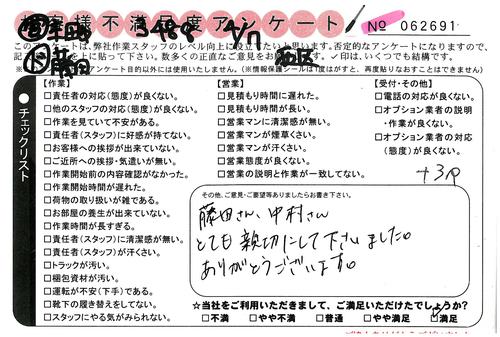 お客様不満足度アンケート
No 062691
3488 4/7
このアンケートは、弊社作業スタッフのレベル向上に役立てたいと思います。否定的なアンケートになりますので、
に上に貼って下さい。数多くの正直なご意見をお
✓印は、いくつでも結構です。
アンケート目的以外には使用いたしません。(※情報保護シールは1度はがすと、再度貼りなおすことはできません)
藤田
西区
チェックリスト
【作業】
□責任者の対応(態度)が良くない。
□他のスタッフの対応(態度)が良くない。
□作業を見ていて不安がある。
□責任者(スタッフ)に好感が持てない。
□お客様への挨拶が出来ていない。
□ご近所への挨拶・気遣いが無い。
□作業開始前の内容確認がなかった。
□作業開始時間が遅れた。
□荷物の取り扱いが雑である。
□お部屋の養生が出来ていない。
□作業時間が長すぎる。
□責任者(スタッフ)に清潔感が無い。
□責任者(スタッフ)が汗くさい。
□トラックが汚い。
□梱包資材が汚い。
□運転が不安(下手)である。
□靴下の履き替えをしてない。
□スタッフにやる気がみられない。
【営業】
□見積もり時間に遅れた。
□見積もり時間が長い。
□営業マンに清潔感が無い。
□営業マンが煙草くさい。
□営業マンが汗くさい。
□営業態度が良くない。
□営業の説明と作業が一致してない。
【受付・その他】
□電話の対応が良くない。
□オプション業者の説明
・作業が良くない。
□オプション業者の対応
(態度)が良くない。
+3P
その他、ご意見・ご要望等ありましたらお書き下さい。
藤田さん、中村さん
とても親切にして下さいました。
ありがとうございます。
☆当社をご利用いただきまして、ご満足いただけたでしょうか?
□不満 □やや不満 □普通 □やや満足 ☑満足